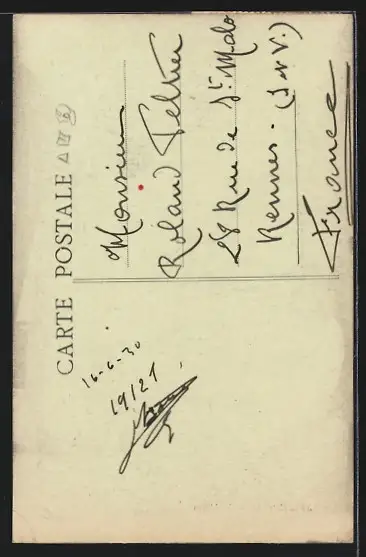 CARTE POSTALE
16-6-30
1912T
Monsieur
Roland
28 Rue de St. Malo
Rennes. (I et V.)
France